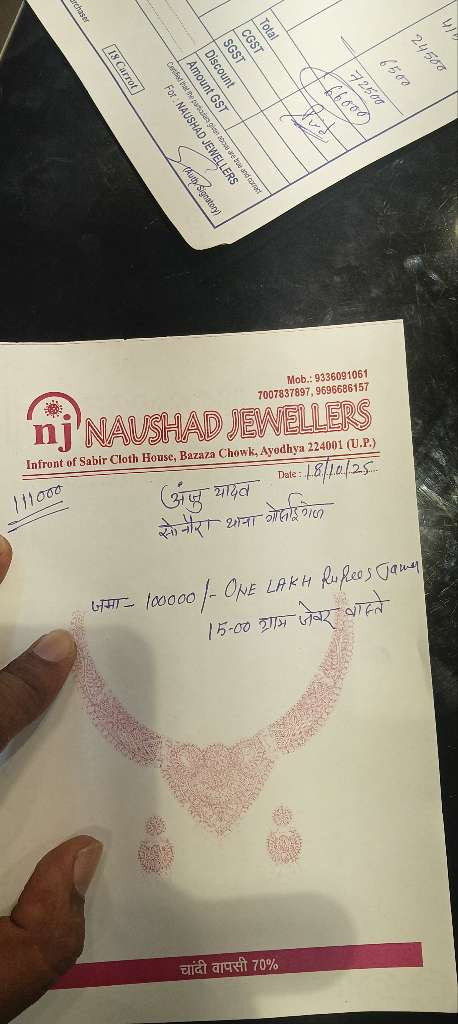 Purchaser
Total
CGST
SGST
Discount
Amount GST
24500
6500
72500
66000
Paid
18 Carrot
Certified that the particulars given above are true and correct
For : NAUSHAD JEWELLERS
(Auth. Signatory)
Mob.: 9336091061
7007837897, 9696686157
nj NAUSHAD JEWELLERS
Infront of Sabir Cloth House, Bazaza Chowk, Ayodhya 224001 (U.P.)
Date : 18/10/25
111000
अंजु यादव
सोनौरा थाना गोसाईगंज
जमा - 100000/- ONE LAKH RuPees Jama
15-00 ग्राम जेवर वास्ते
चांदी वापसी 70%